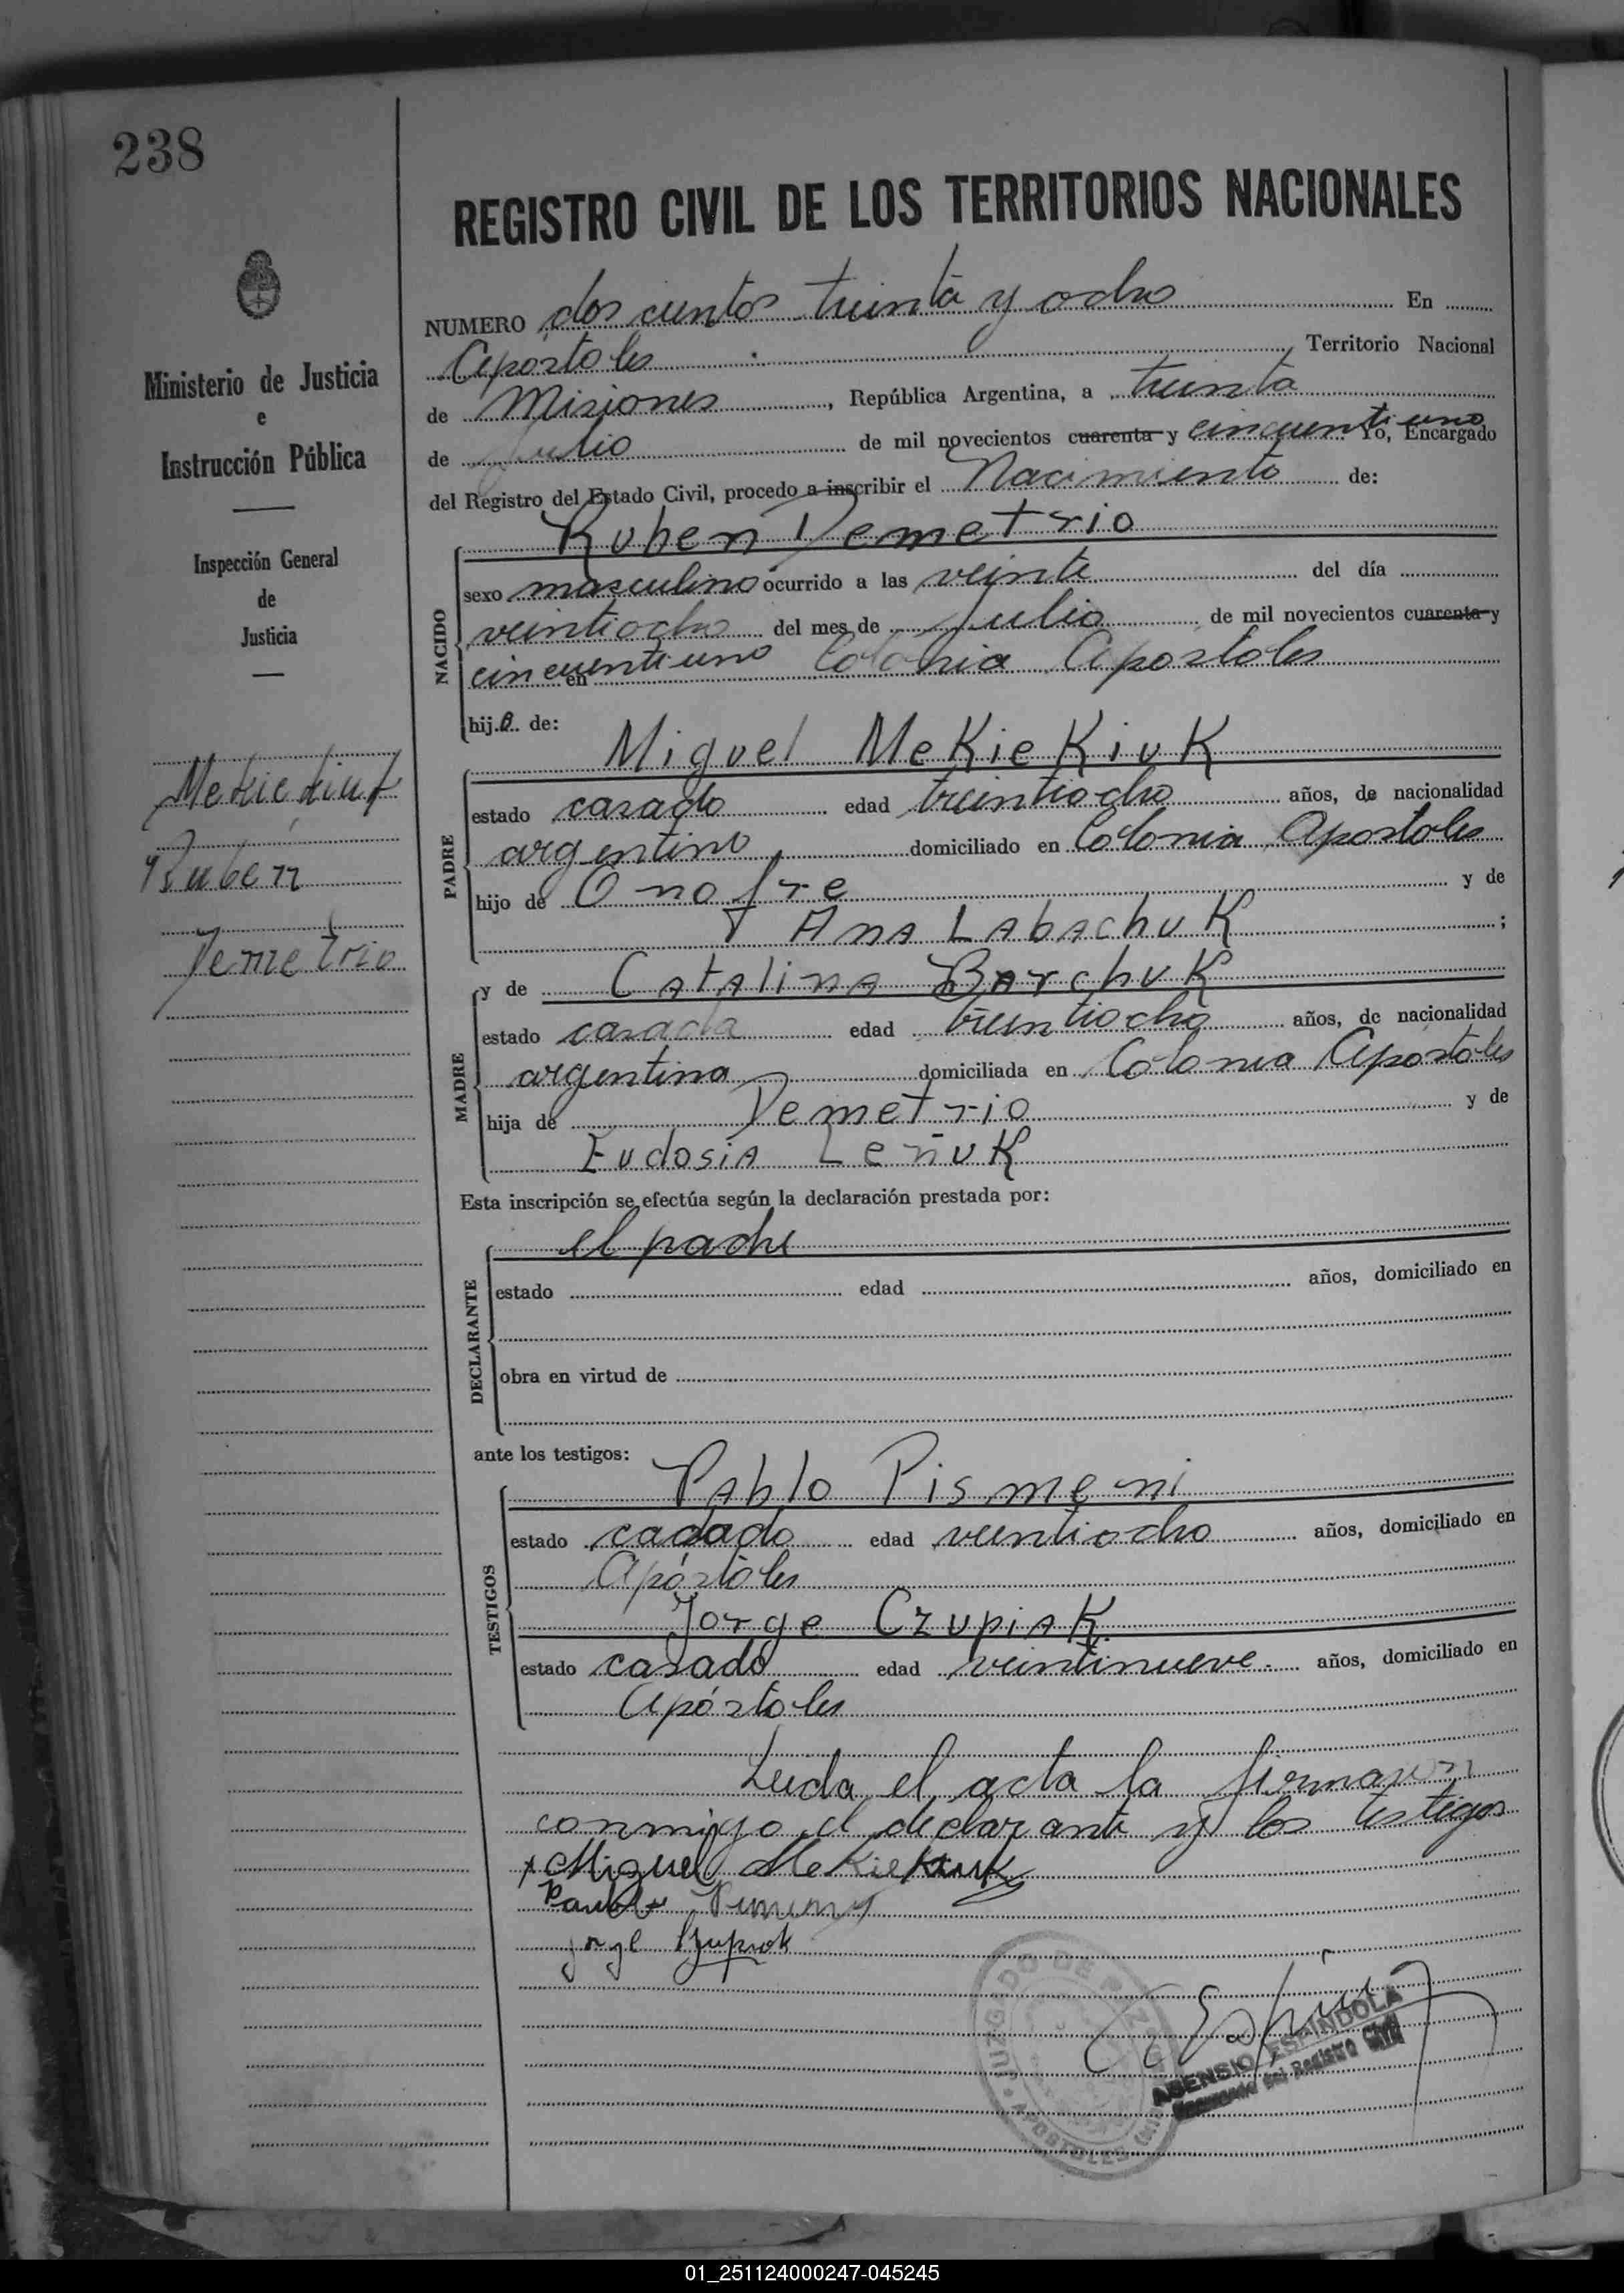 238
REGISTRO CIVIL DE LOS TERRITORIOS NACIONALES
Ministerio de Justicia
e
Instrucción Pública
Inspección General
de
Justicia
Mekiekiuk
Ruben
Demetrio
NUMERO dos cientos treinta y ocho En
Apóstoles Territorio Nacional
de Misiones, República Argentina, a treinta
de Julio de mil novecientos cuarenta y cincuentiuno Yo, Encargado
del Registro del Estado Civil, procedo a inscribir el Nacimiento de:
NACIDO
Ruben Demetrio
sexo masculino ocurrido a las veinte del día
veintiocho del mes de Julio de mil novecientos cuarenta y
cincuentiuno en Colonia Apostoles
hijo de:
PADRE
Miguel MeKieKiuK
estado casado edad treintiocho años, de nacionalidad
argentino domiciliado en Colonia Apostoles
hijo de Onofre y de
Ana LabachuK ;
MADRE
y de Catalina BarchuK
estado casada edad treintiocho años, de nacionalidad
argentina domiciliada en Colonia Apostoles
hija de Demetrio y de
Eudosia LeñuK
Esta inscripción se efectúa según la declaración prestada por:
DECLARANTE
el padre
estado edad años, domiciliado en
obra en virtud de
ante los testigos:
TESTIGOS
Pablo Pismeni
estado cadado edad veintiocho años, domiciliado en
Apóstoles
Jorge CzupiaK
estado casado edad veintinueve años, domiciliado en
Apóstoles
Leida el acta la firmaron
conmigo el declarante y los testigos
x Miguel MeKieKiuk
Jorge Czupiak
JUZGADO DE PAZ
APOSTOLES
ASENSIO ESPINDOLA
Encargado del Registro Civil
01_251124000247-045245